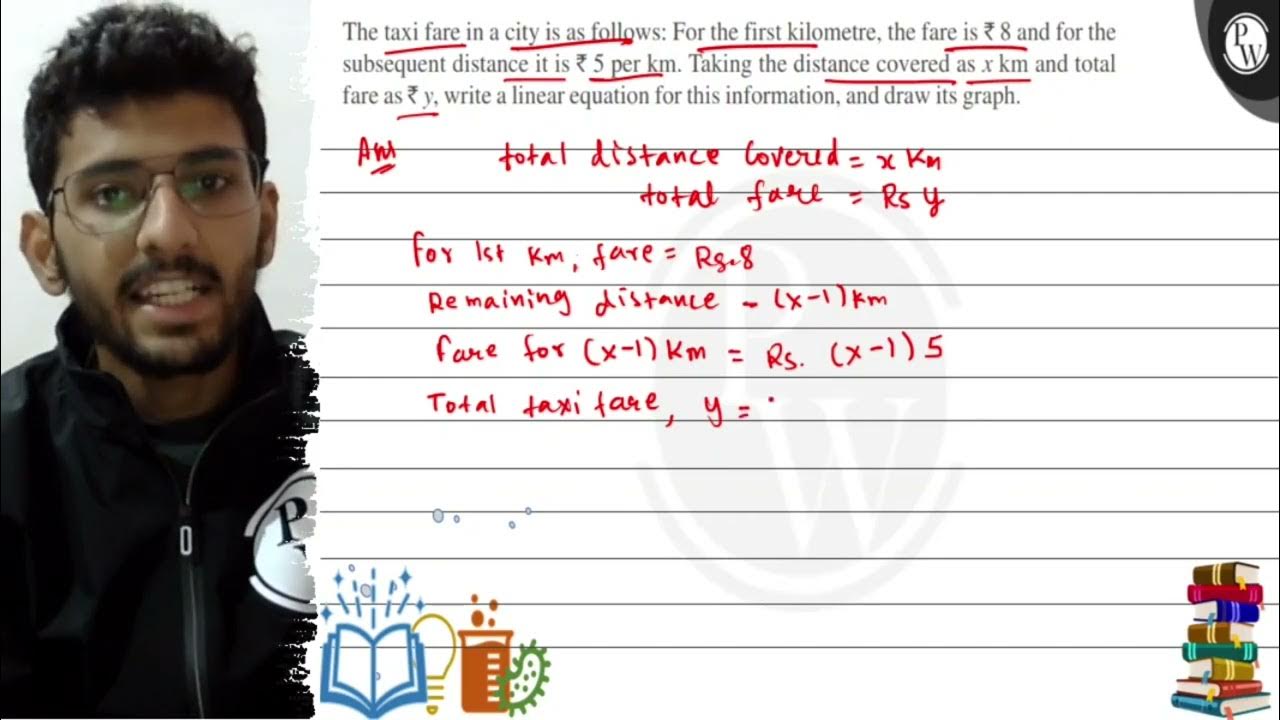 The taxi fare in a city is as follows: For the first kilometre, the fare is ₹ 8 and for the
subsequent distance it is ₹ 5 per km. Taking the distance covered as x km and total
fare as ₹ y, write a linear equation for this information, and draw its graph.
Ans total distance Covered = x Km
total fare = Rs y
for 1st Km, fare = Rs. 8
Remaining distance - (x-1) Km
fare for (x-1) Km = Rs. (x-1) 5
Total taxi fare, y =
PW
PW
P